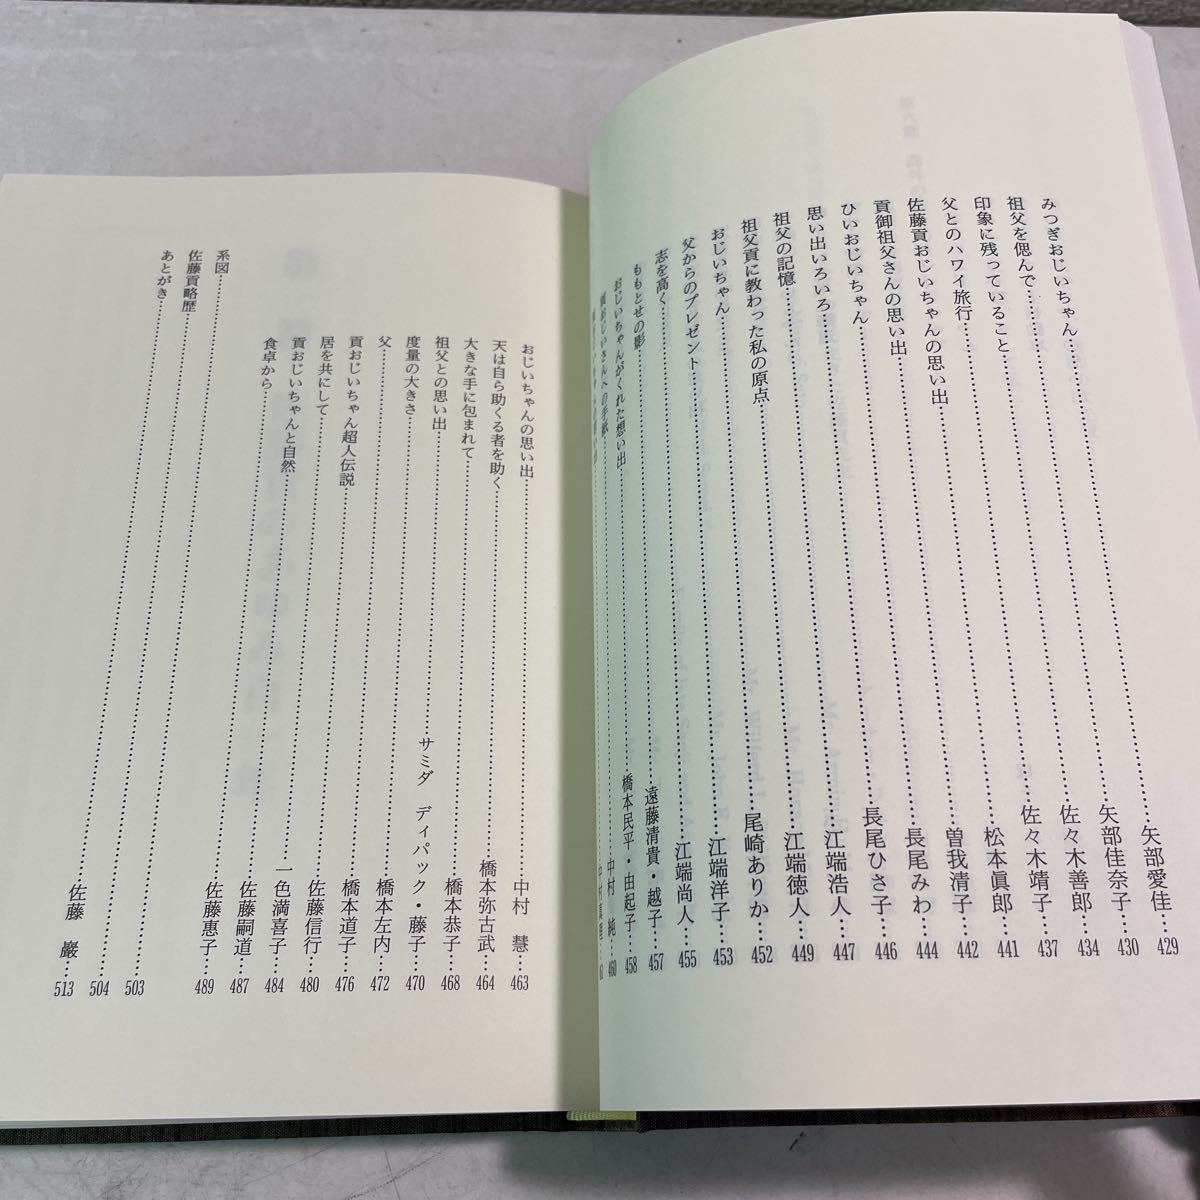 みつぎおじいちゃん……矢部愛佳…429
祖父を偲んで……矢部佳奈子…430
印象に残っていること……佐々木善郎…434
父とのハワイ旅行……佐々木靖子…437
佐藤貢おじいちゃんの思い出……松本眞郎…441
貢御祖父さんの思い出……曽我清子…442
ひいおじいちゃん……長尾みわ…444
思い出いろいろ……長尾ひさ子…446
祖父の記憶……江端浩人…447
祖父貢に教わった私の原点……江端徳人…449
おじいちゃん……尾崎ありか…452
父からのプレゼント……江端洋子…453
志を高く……江端尚人…455
ももとせの影……遠藤清貴・越子…457
おじいちゃんがくれた想い出……橋本民平・由起子…458
おじいさんへの手紙……中村 純…460
おじいちゃんの思い出……中村 慧…463
天は自ら助くる者を助く……橋本弥古武…464
大きな手に包まれて……橋本恭子…468
祖父との思い出……サミダ ディパック・藤子…470
度量の大きさ……橋本左内…472
父……橋本道子…476
貢おじいちゃん超人伝説……佐藤信行…480
居を共にして……一色満喜子…484
貢おじいちゃんと自然……佐藤嗣道…487
食卓から……佐藤惠子…489
系図……503
佐藤貢略歴……504
あとがき……佐藤 巖…513